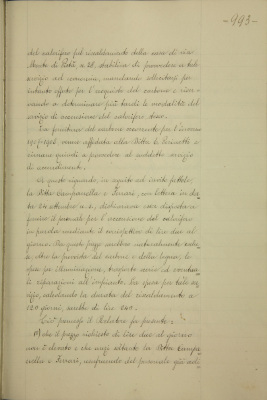 - 993 -
del calorifero pel riscaldamento della casa di via
Monte di Pietà, n. 28, stabiliva di provvedere a tale
servizio ad economia, mandando all'ufficio per
intanto offerte per l'acquisto del carbone e riser-
vando a determinare più tardi le modalità del
servizio di accensione del calorifero stesso.
La fornitura del carbone occorrente per l'inverno
1907-1908 venne affidata alla Ditta
rimane quindi a provvedere al suddetto servizio
di accensione.
A questo riguardo, in seguito ad invito fattole,
la Ditta Campanella e Ferrari, con lettera in da-
ta 24 settembre u. s., dichiarava esser disposta a
fornire il personale per l'accensione del calorifero
in parola mediante il corrispettivo di lire due al
giorno. Da questo prezzo sarebbero naturalmente esclu-
se, oltre la provvista del carbone e della legna, le
spese per illuminazione, trasporto ceneri ed eventua-
li riparazioni all'impianto. La spesa pel solo ser-
vizio, calcolando la durata del riscaldamento a
120 giorni, sarebbe di lire 240.
Ciò premesso il Relatore fa presente:
che il prezzo richiesto di lire due al giorno
non è elevato e che anzi attesta la Ditta Campa-
nella e Ferrari, usufruendo del personale già